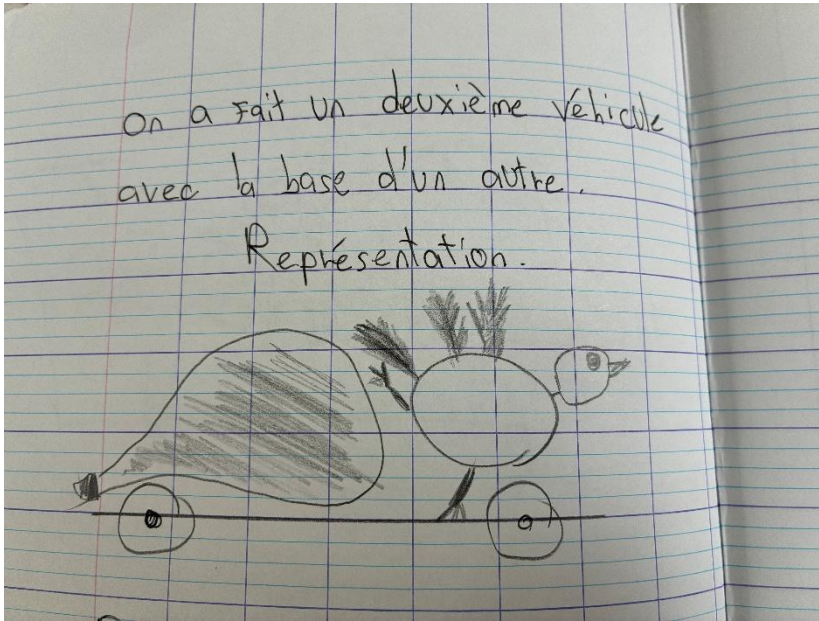 On a Fait un deuxième véhicule
avec la base d'un autre.
Représentation.